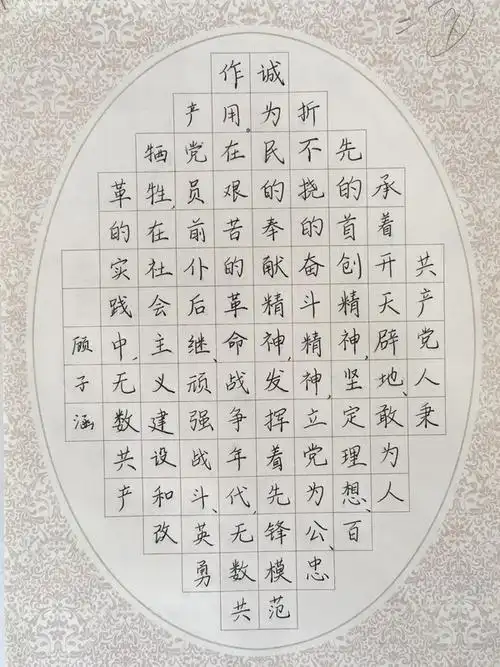 共产党人秉
承着开天辟地、敢为人
先的首创精神,坚定理想、百
折不挠的奋斗精神,立党为公、忠
诚为民的奉献精神,发挥着先锋模范
作用。在艰苦的革命战争年代,无数共
产党员前仆后继、顽强战斗、英勇
牺牲,在社会主义建设和改
革的实践中,无数共产
顾子涵